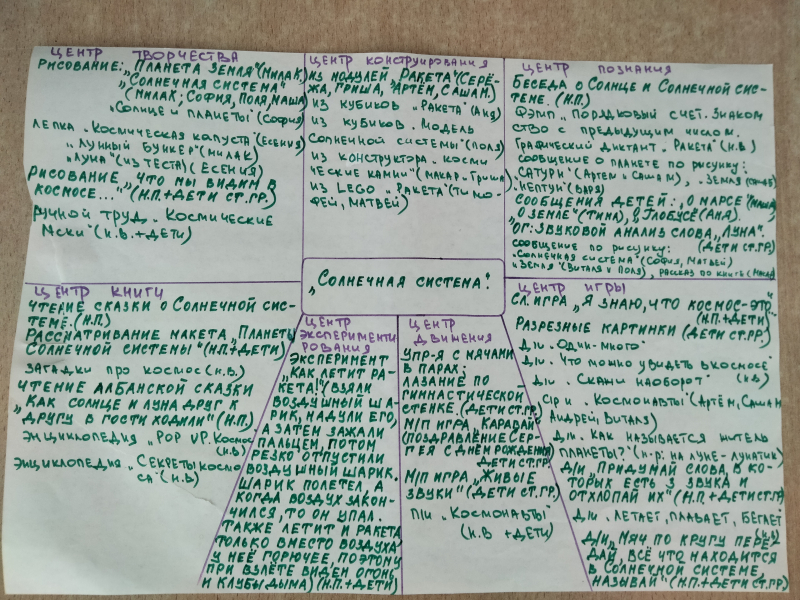 ЦЕНТР ТВОРЧЕСТВА
РИСОВАНИЕ: „ПЛАНЕТА ЗЕМЛЯ"(МИЛАК.)
„СОЛНЕЧНАЯ СИСТЕМА"
(МИЛАК; СОФИЯ, ПОЛЯ, МАША)
„СОЛНЦЕ И ПЛАНЕТЫ"(СОФИЯ)
ЛЕПКА „КОСМИЧЕСКАЯ КАПУСТА"(ЕСЕНИЯ)
„ЛУННЫЙ БУНКЕР"(МИЛАК)
„ЛУНА"(ИЗ ТЕСТА)(ЕСЕНИЯ)
РИСОВАНИЕ „ЧТО МЫ ВИДИМ В
КОСМОСЕ..."(Н.П+ДЕТИ СТ.ГР.)
РУЧНОЙ ТРУД „КОСМИЧЕСКИЕ
МСКИ"(Н.В.+ДЕТИ)
ЦЕНТР КОНСТРУИРОВАНИЯ
ИЗ МОДУЛЕЙ „РАКЕТА"(СЕРЁ-
ЖА, ГРИША, АРТЁМ, САША М.)
ИЗ КУБИКОВ „РАКЕТА"(АНЯ)
ИЗ КУБИКОВ „МОДЕЛЬ
СОЛНЕЧНОЙ СИСТЕМЫ"(ПОЛЯ)
ИЗ КОНСТРУКТОРА „КОСМИ
ЧЕСКИЕ КАМНИ"(МАКАР И ГРИША)
ИЗ LEGO „РАКЕТА"(ТИМО
ФЕЙ, МАТВЕЙ)
ЦЕНТР ПОЗНАНИЯ
БЕСЕДА О СОЛНЦЕ И СОЛНЕЧНОЙ СИС-
ТЕМЕ. (Н.П.)
ФЭМП „ПОРЯДКОВЫЙ СЧЕТ. ЗНАКОМ
СТВО С ПРЕДЫДУЩИМ ЧИСЛОМ.
ГРАФИЧЕСКИЙ ДИКТАНТ „РАКЕТА"(Н.В.)
СООБЩЕНИЕ О ПЛАНЕТЕ ПО РИСУНКУ:
„САТУРН"(АРТЕМ И САША М), „ЗЕМЛЯ
„НЕПТУН"(ВАРЯ)
СООБЩЕНИЯ ДЕТЕЙ: „О МАРСЕ"
„О ЗЕМЛЕ"(ТИМА), „О ГЛОБУСЕ"(АНЯ).
ОГ: ЗВУКОВОЙ АНАЛИЗ СЛОВА „ЛУНА".
(ДЕТИ СТ.ГР)
СООБЩЕНИЕ ПО РИСУНКУ:
„СОЛНЕЧНАЯ СИСТЕМА"(СОФИЯ, МАТВЕЙ)
„ЗЕМЛЯ"(ВИТАЛЯ И ПОЛЯ), РАССКАЗ ПО КНИГЕ
„СОЛНЕЧНАЯ СИСТЕМА".
ЦЕНТР КНИГИ
ЧТЕНИЕ СКАЗКИ О СОЛНЕЧНОЙ СИС-
ТЕМЕ.(Н.П.)
РАССМАТРИВАНИЕ МАКЕТА „ПЛАНЕТЫ
СОЛНЕЧНОЙ СИСТЕМЫ"(Н.П+ДЕТИ)
ЗАГАДКИ ПРО КОСМОС(Н.В.)
ЧТЕНИЕ АЛБАНСКОЙ СКАЗКИ
„КАК СОЛНЦЕ И ЛУНА ДРУГ К
ДРУГУ В ГОСТИ ХОДИЛИ"(Н.П)
ЭНЦИКЛОПЕДИЯ „POP UP. КОСМОС"
(Н.В)
ЭНЦИКЛОПЕДИЯ „СЕКРЕТЫ КОСМО
СА"(Н.В)
ЦЕНТР
ЭКСПЕРИМЕНТИ
РОВАНИЯ
ЭКСПЕРИМЕНТ
„КАК ЛЕТИТ РА-
КЕТА!"(ВЗЯЛИ
ВОЗДУШНЫЙ ША-
РИК, НАДУЛИ ЕГО,
А ЗАТЕМ ЗАЖАЛИ
ПАЛЬЦЕМ, ПОТОМ
РЕЗКО ОТПУСТИЛИ
ВОЗДУШНЫЙ ШАРИК.
ШАРИК ПОЛЕТЕЛ, А
КОГДА ВОЗДУХ ЗАКОН-
ЧИЛСЯ, ТО ОН УПАЛ.
ТАКЖЕ ЛЕТИТ И РАКЕТА
ТОЛЬКО ВМЕСТО ВОЗДУХА
У НЕЁ ГОРЮЧЕЕ, ПОЭТОМУ
ПРИ ВЗЛЁТЕ ВИДЕН ОГОНЬ
И КЛУБЫ ДЫМА)(Н.П+ДЕТИ)
ЦЕНТР
ДВИЖЕНИЯ
УПР-Я С МЯЧАМИ
В ПАРАХ;
ЛАЗАНИЕ ПО
ГИМНАСТИЧЕСКОЙ
СТЕНКЕ.(ДЕТИ СТ.ГР)
М/П ИГРА „КАРАВАЙ"
(ПОЗДРАВЛЕНИЕ СЕР-
ГЕЯ С ДНЁМ РОЖДЕНИЯ)
ДЕТИ СТ.ГР)
М/П ИГРА „ЖИВЫЕ
ЗВУКИ"(ДЕТИ СТ.ГР)
П/И „КОСМОНАВТЫ"
(Н.В +ДЕТИ)
ЦЕНТР ИГРЫ
СЛ. ИГРА „Я ЗНАЮ, ЧТО КОСМОС-ЭТО"
(Н.П+ДЕТИ)
РАЗРЕЗНЫЕ КАРТИНКИ (ДЕТИ СТ.ГР)
Д/И „ОДИН-МНОГО"
Д/И „ЧТО МОЖНО УВИДЕТЬ В КОСМОСЕ"
Д/И „СКАЖИ НАОБОРОТ" (Н.В)
С/Р И „КОСМОНАВТЫ"(АРТЁМ, САША М
АНДРЕЙ, ВИТАЛЯ)
Д/И „КАК НАЗЫВАЕТСЯ ЖИТЕЛЬ
ПЛАНЕТЫ?"(Н-Р: НА ЛУНЕ-ЛУНАТИК)
Д/И „ПРИДУМАЙ СЛОВА, В КО-
ТОРЫХ ЕСТЬ 3 ЗВУКА И
ОТХЛОПАЙ ИХ"(Н.П.+ДЕТИ СТ.ГР)
Д/И „ЛЕТАЕТ, ПЛАВАЕТ, БЕГАЕТ"
(Н.В)
Д/И „МЯЧ ПО КРУГУ ПЕРЕ
ДАЙ, ВСЁ ЧТО НАХОДИТСЯ
В СОЛНЕЧНОЙ СИСТЕМЕ,
НАЗЫВАЙ"(Н.П+ДЕТИ СТ.ГР)